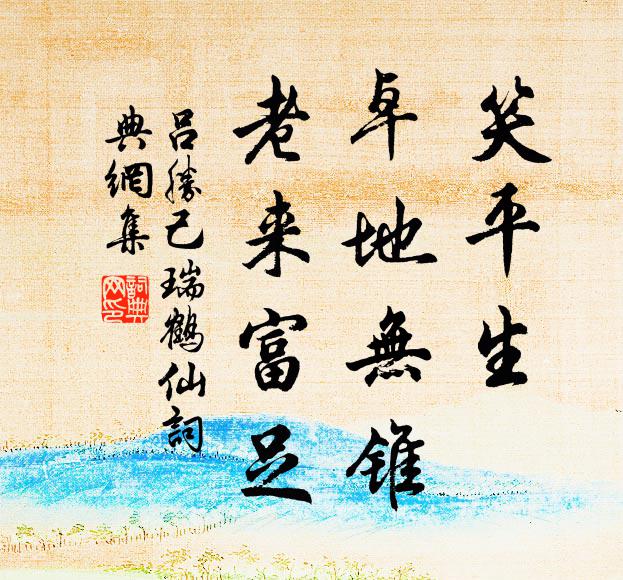 笑平生
卓地無錐
老来富足
呂勝己瑞鶴仙詞
典網集
詞典
网印